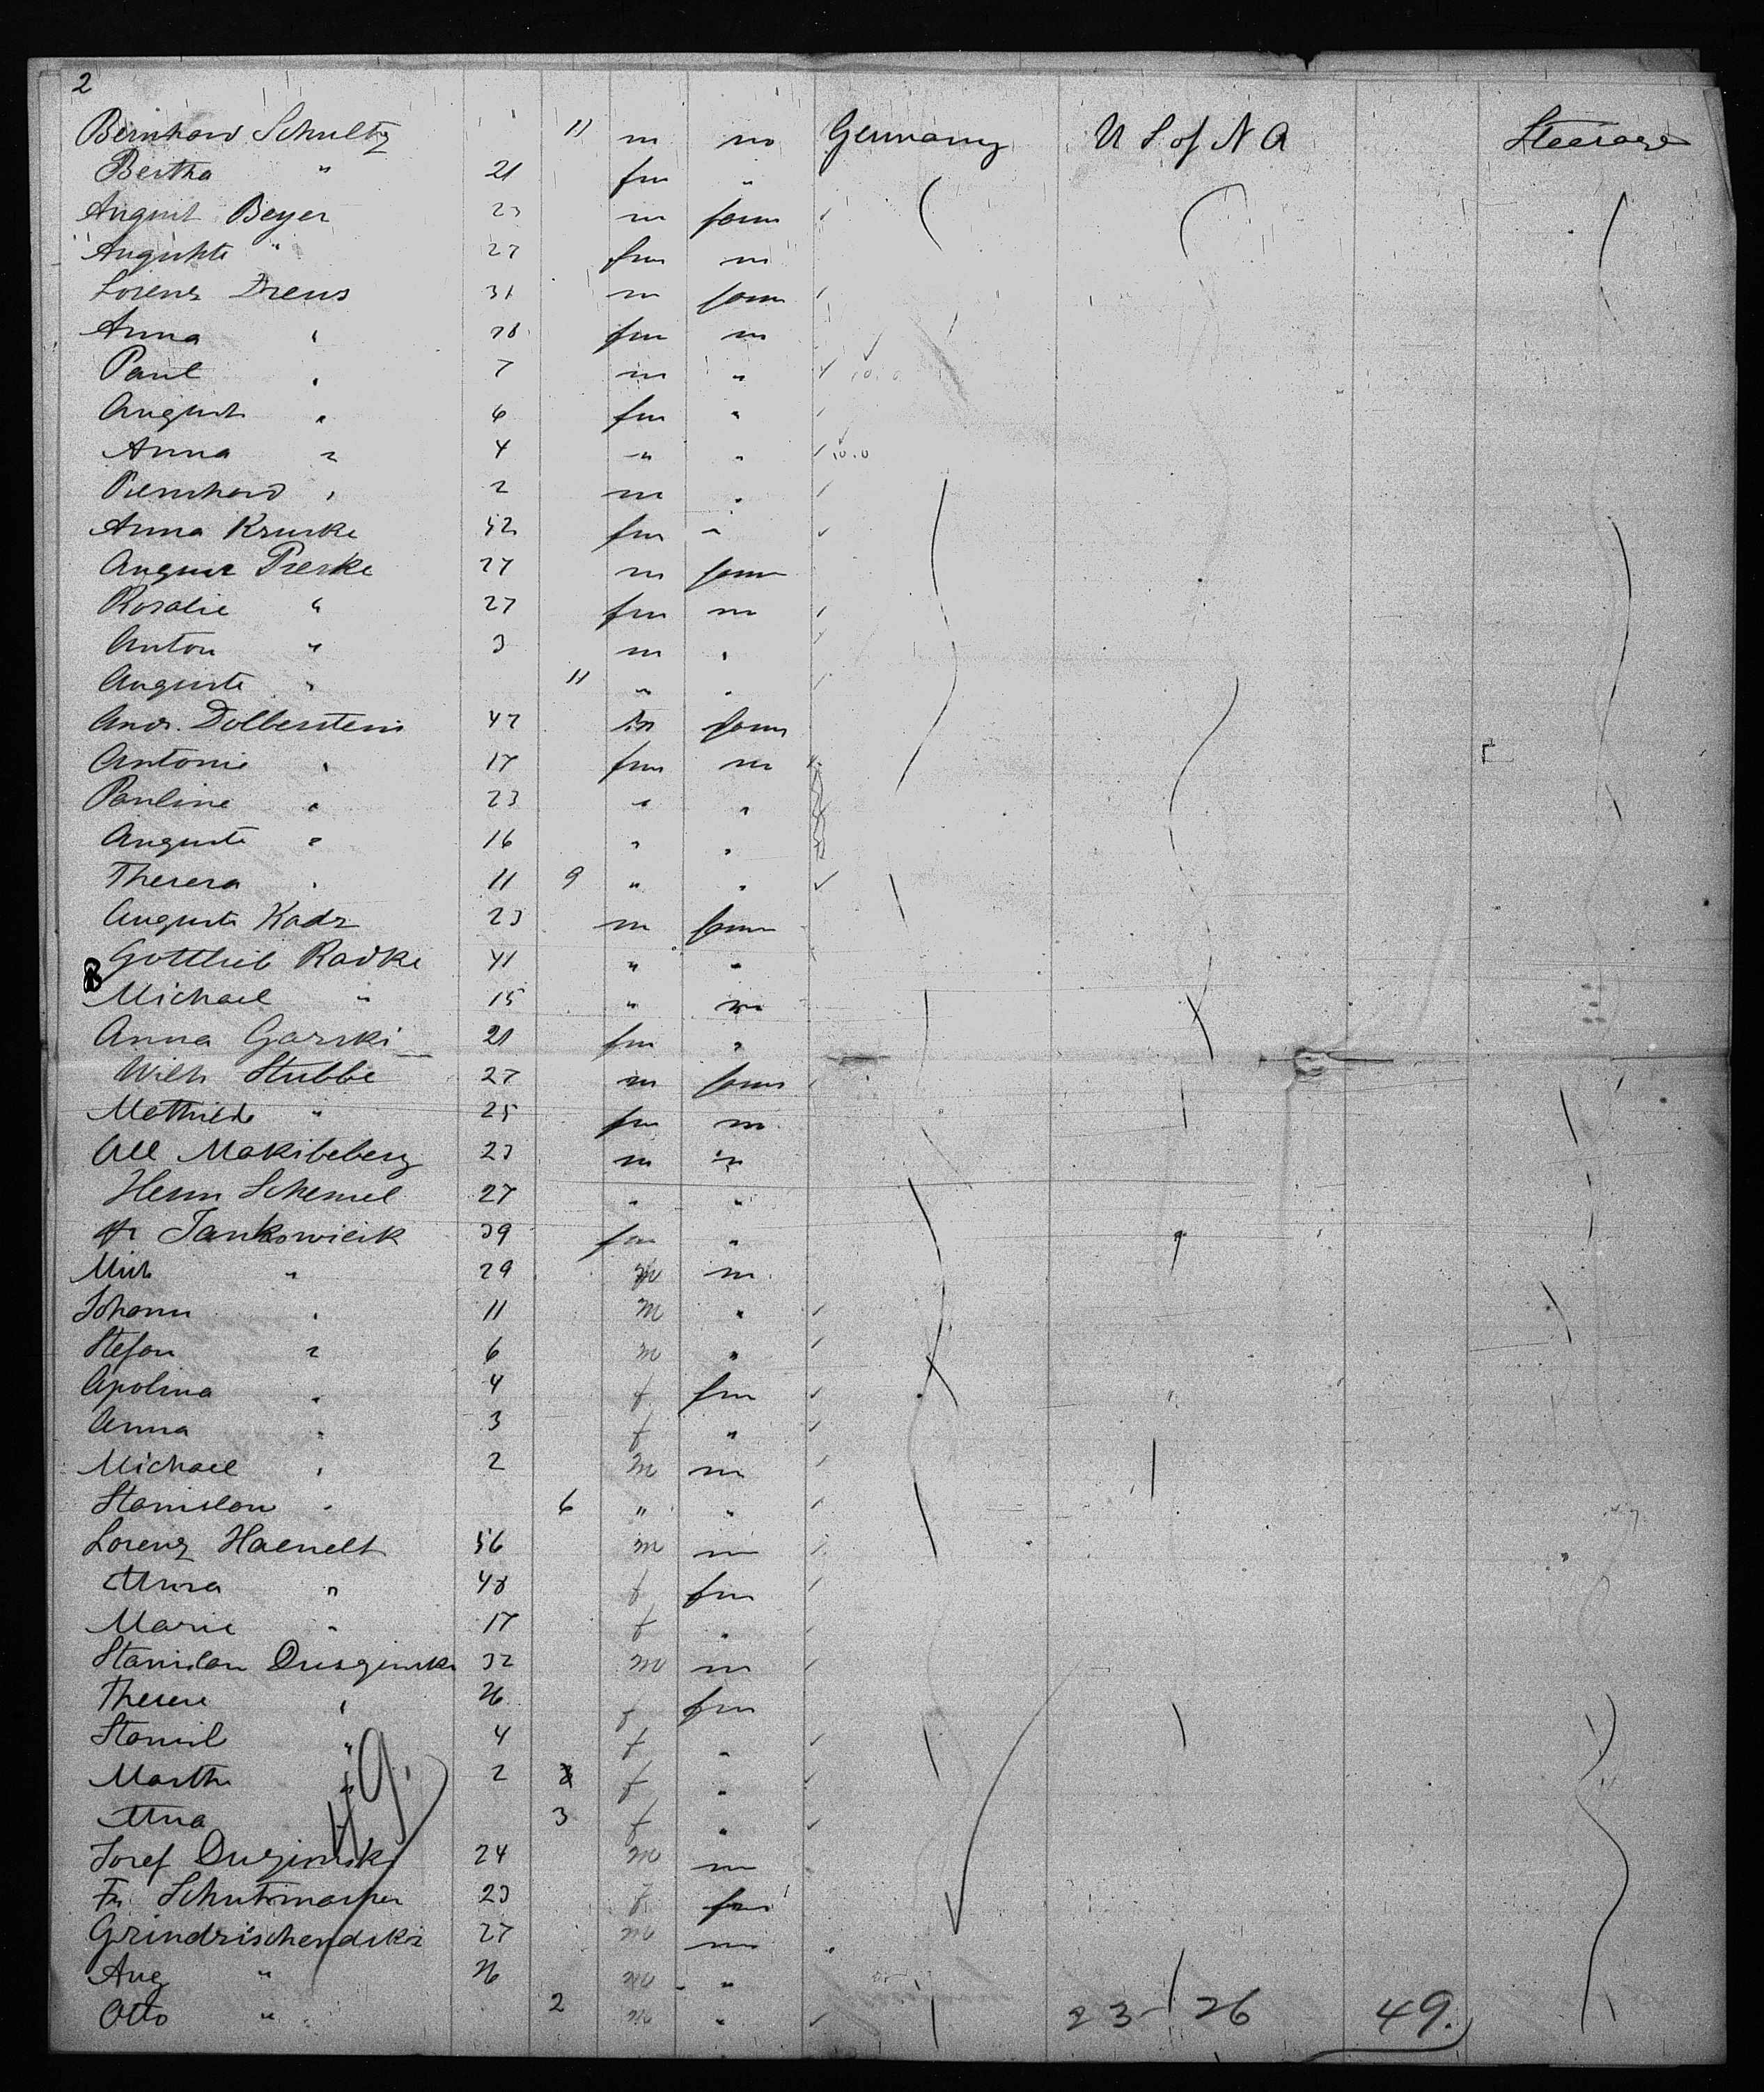 2
Bernhard Schultz 11 m no Germany U S of N A Steerage
Bertha " 21 fm "
August Beyer 23 m farm
Auguste " 27 fm no
Lorenz Drews 31 m farm
Anna " 28 fm no
Paul " 7 m "
August " 6 fm "
Anna " 4 " "
Bernhard " 2 m "
Anna Kruske 52 fm "
August Preske 27 m farm
Rosalie " 27 fm no
Anton " 3 m "
Auguste " 11 " "
Andr. Dolberstein 47 m farm
Antonie " 17 fm no
Pauline " 23 " "
Auguste " 16 " "
Theresa " 11 9 " "
August Kadz 23 m farm
Gottlieb Radke 41 " "
Michael " 15 " no
Anna Garski 21 fm "
Wilh Stubbe 27 m farm
Mathilde " 25 fm no
23 m
Herm Schemel 27 " "
Jankowicik 39 fm "
Mich " 29 m
Johann " 11 m "
Stefan " 6 m "
Apolina " 4 f fm
Anna " 3 f "
Michael " 2 m m
Stanislau " 6 " "
Lorenz Haenelt 56 m m
Anna " 48 f fm
Marie " 17 f "
Stanislau 32 m m
Therese " 26 f fm
Stanisl " 4 f "
Martha " 2 f "
Anna 3 f "
49.
Josef 24 m m
Fr. 23 f fm
Grindrischendski 27 m m
Aug " 26 m "
Otto " 2 m " 23 26 49.